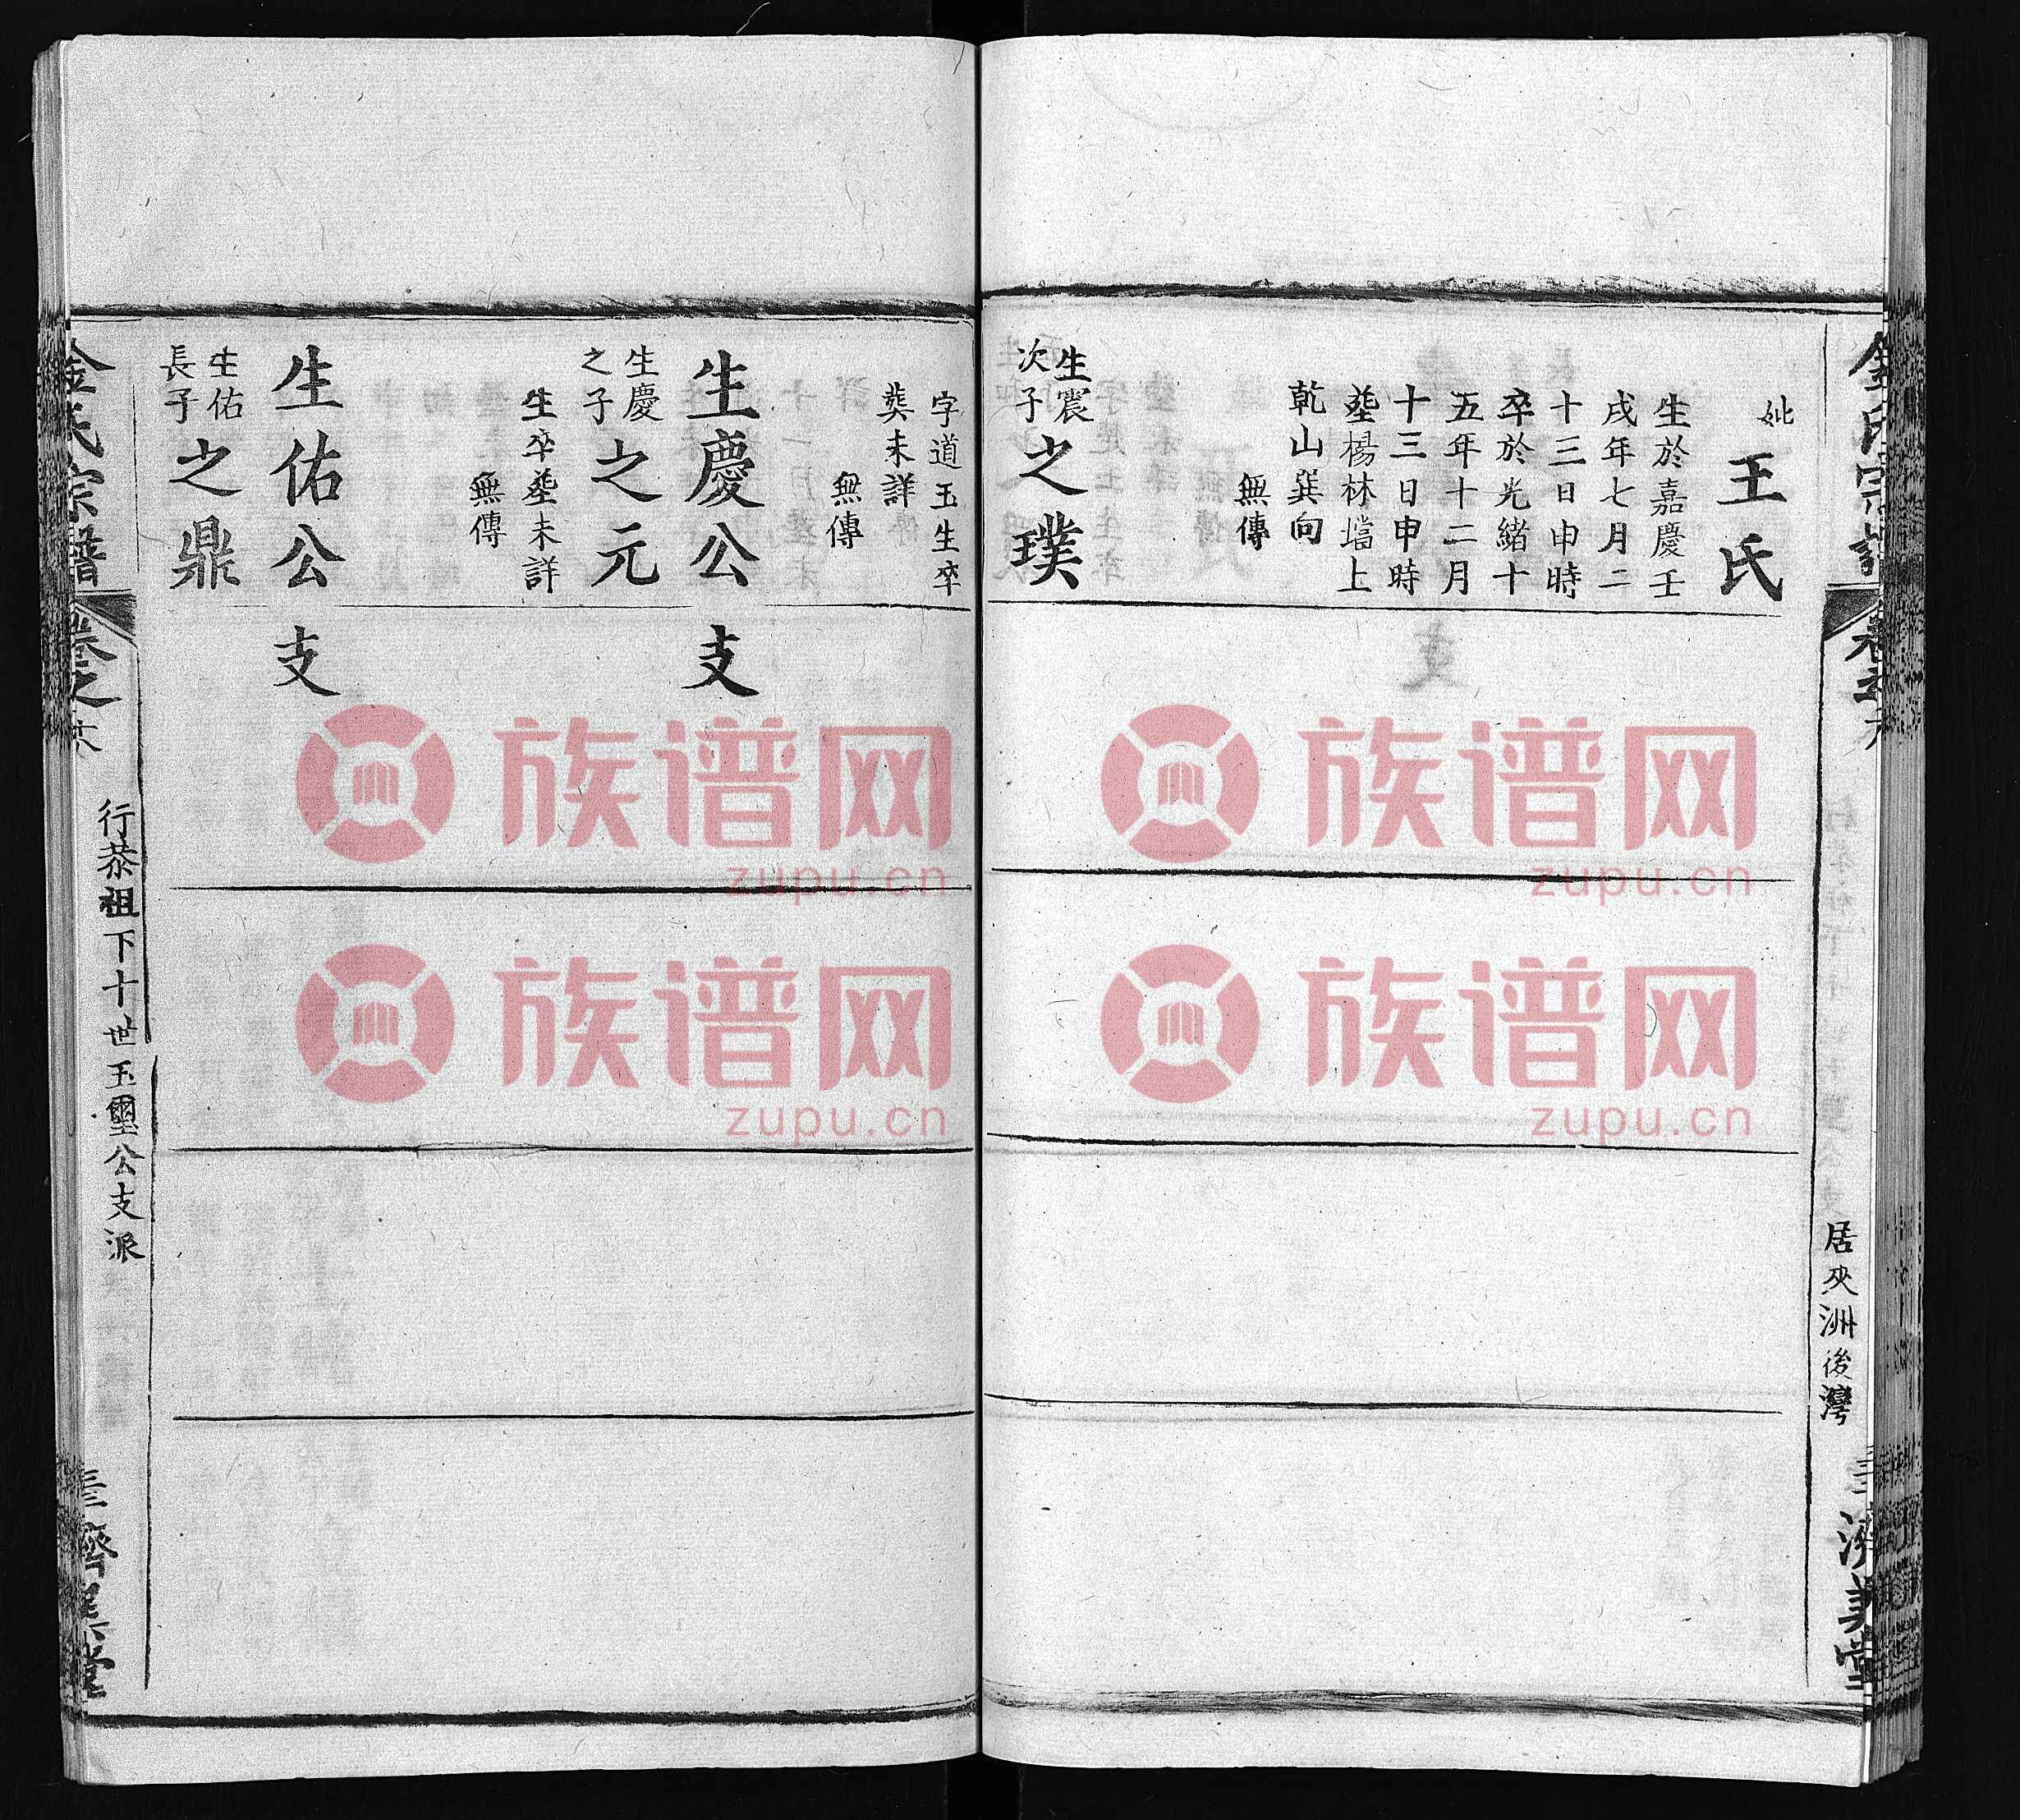 金氏宗譜
卷之
六
居夾洲後灣
三三
濟美堂
妣
王氏
生於嘉慶壬
戌年七月二
十三日申時
卒於光緒十
五年十二月
十三日申時
塟楊林壋上
乾山巽向
無傳
生震
次子
之璞
字道玉生卒
葬未詳
無傳
生慶公 支
生慶
之子
之元
生卒塟未詳
無傳
生佑公 支
生佑
長子
之鼎
金氏宗譜
卷之
六
行恭祖下十世玉璽公支派
三三
濟美堂
族谱网
zupu.cn
族谱网
zupu.cn
族谱网
zupu.cn
族谱网
zupu.cn